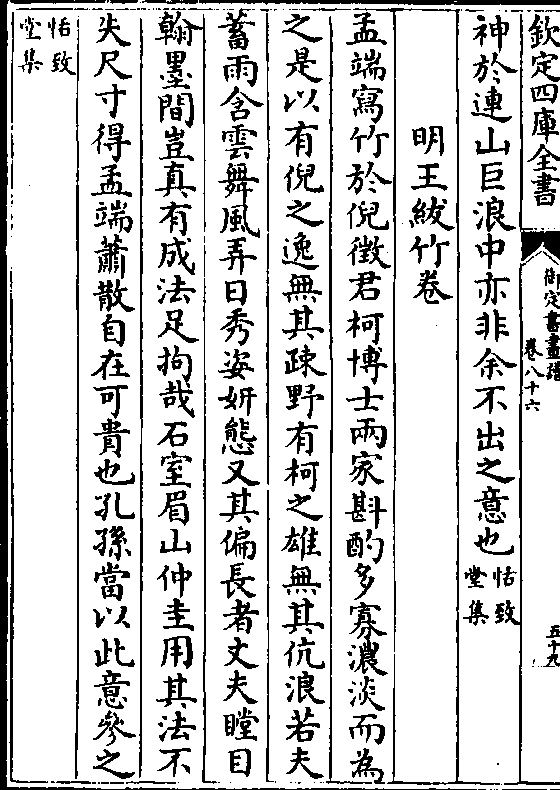 欽定四庫全書
御定書畫譜
卷八十六
五十九
神於連山巨浪中亦非余不出之意也 恬致堂集
明王紱竹卷
孟端寫竹於倪徵君柯博士兩家斟酌多寡濃淡而為
之是以有倪之逸無其疎野有柯之雄無其伉浪若夫
蓄雨含雲舞風弄日秀姿妍態又其偏長者丈夫瞠目
翰墨間豈真有成法足拘哉石室眉山仲圭用其法不
失尺寸得孟端蕭散自在可貴也孔孫當以此意參之
恬致堂集